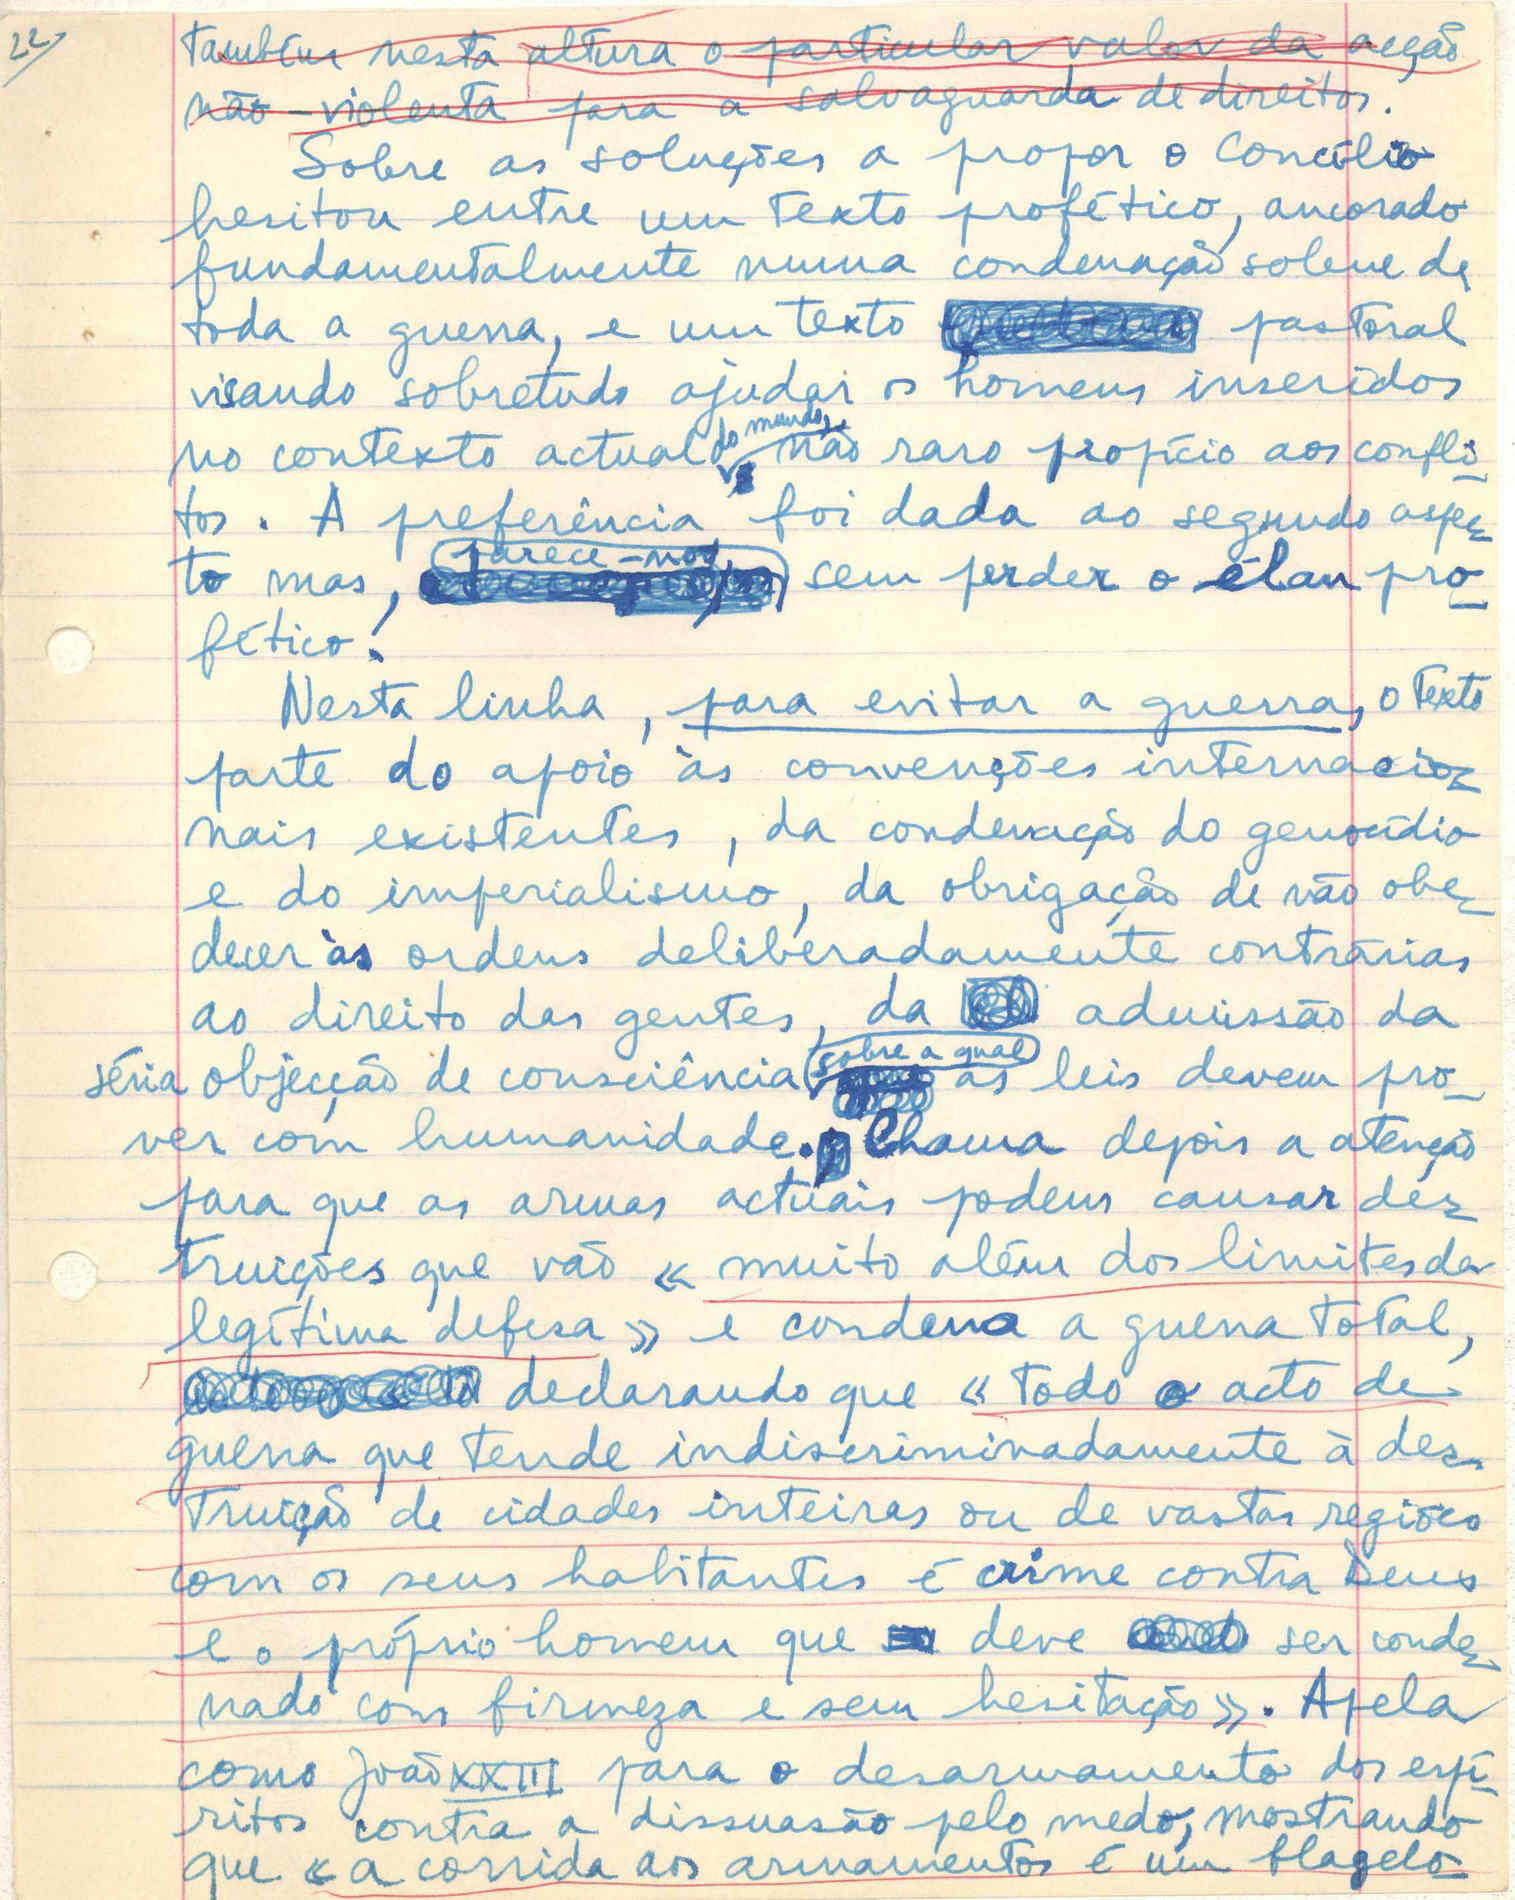 22
também nesta altura o particular valor da acção
não-violenta para a salvaguarda de direitos.
Sobre as soluções a propor o Concílio
hesitou entre um texto profético, ancorado
fundamentalmente numa condenação solene de
toda a guerra, e um texto pastoral
visando sobretudo ajudar os homens inseridos
no contexto actual do mundo, não raro propício aos confli-
tos. A preferência foi dada ao segundo aspec-
to mas, parece-nos, sem perder o élan pro-
fético!
Nesta linha, para evitar a guerra, o texto
parte do apoio às convenções internacio-
nais existentes, da condenação do genocídio
e do imperialismo, da obrigação de não obe-
decer às ordens deliberadamente contrárias
ao direito das gentes, da admissão da
séria objecção de consciência sobre a qual as leis devem pro-
ver com humanidade. Chama depois a atenção
para que as armas actuais podem causar des-
truições que vão «muito além dos limites da
legítima defesa» e condena a guerra total,
declarando que «todo o acto de
guerra que tende indiscriminadamente à des-
truição de cidades inteiras ou de vastas regiões
com os seus habitantes é crime contra Deus
e o próprio homem que deve ser conde-
nado com firmeza e sem hesitação». Apela
como João XXIII para o desarmamento dos espí-
ritos contra a dissuasão pelo medo, mostrando
que «a corrida aos armamentos é um flagelo